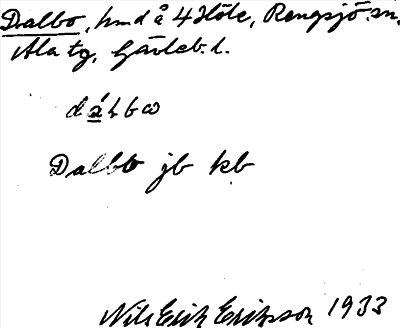 Dalbo, hmd å 4 Höle, Rengsjö sn,
Ala tg, Gävleb. l.
dáhbω
Dalbo jb kb
Nils Erik Eriksson 1933